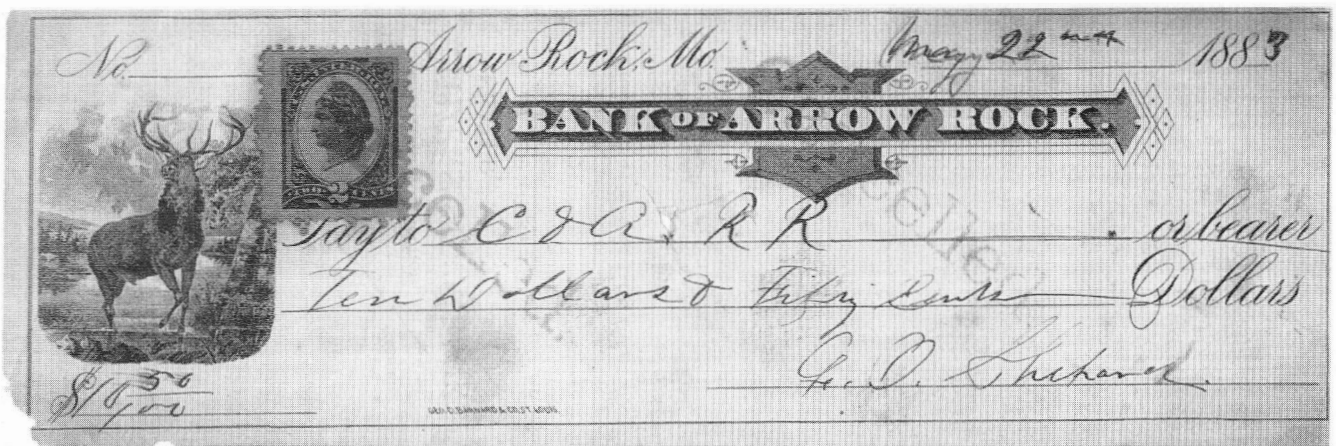 No. Arrow Rock, Mo. May 22nd 1883
BANK OF ARROW ROCK.
TWO CENTS
Pay to C & A. R R or bearer
Ten Dollars & Fifty Cents Dollars
Shepard
$10 50/100
GEO. D. BARNARD & CO. ST. LOUIS.
Cancelled